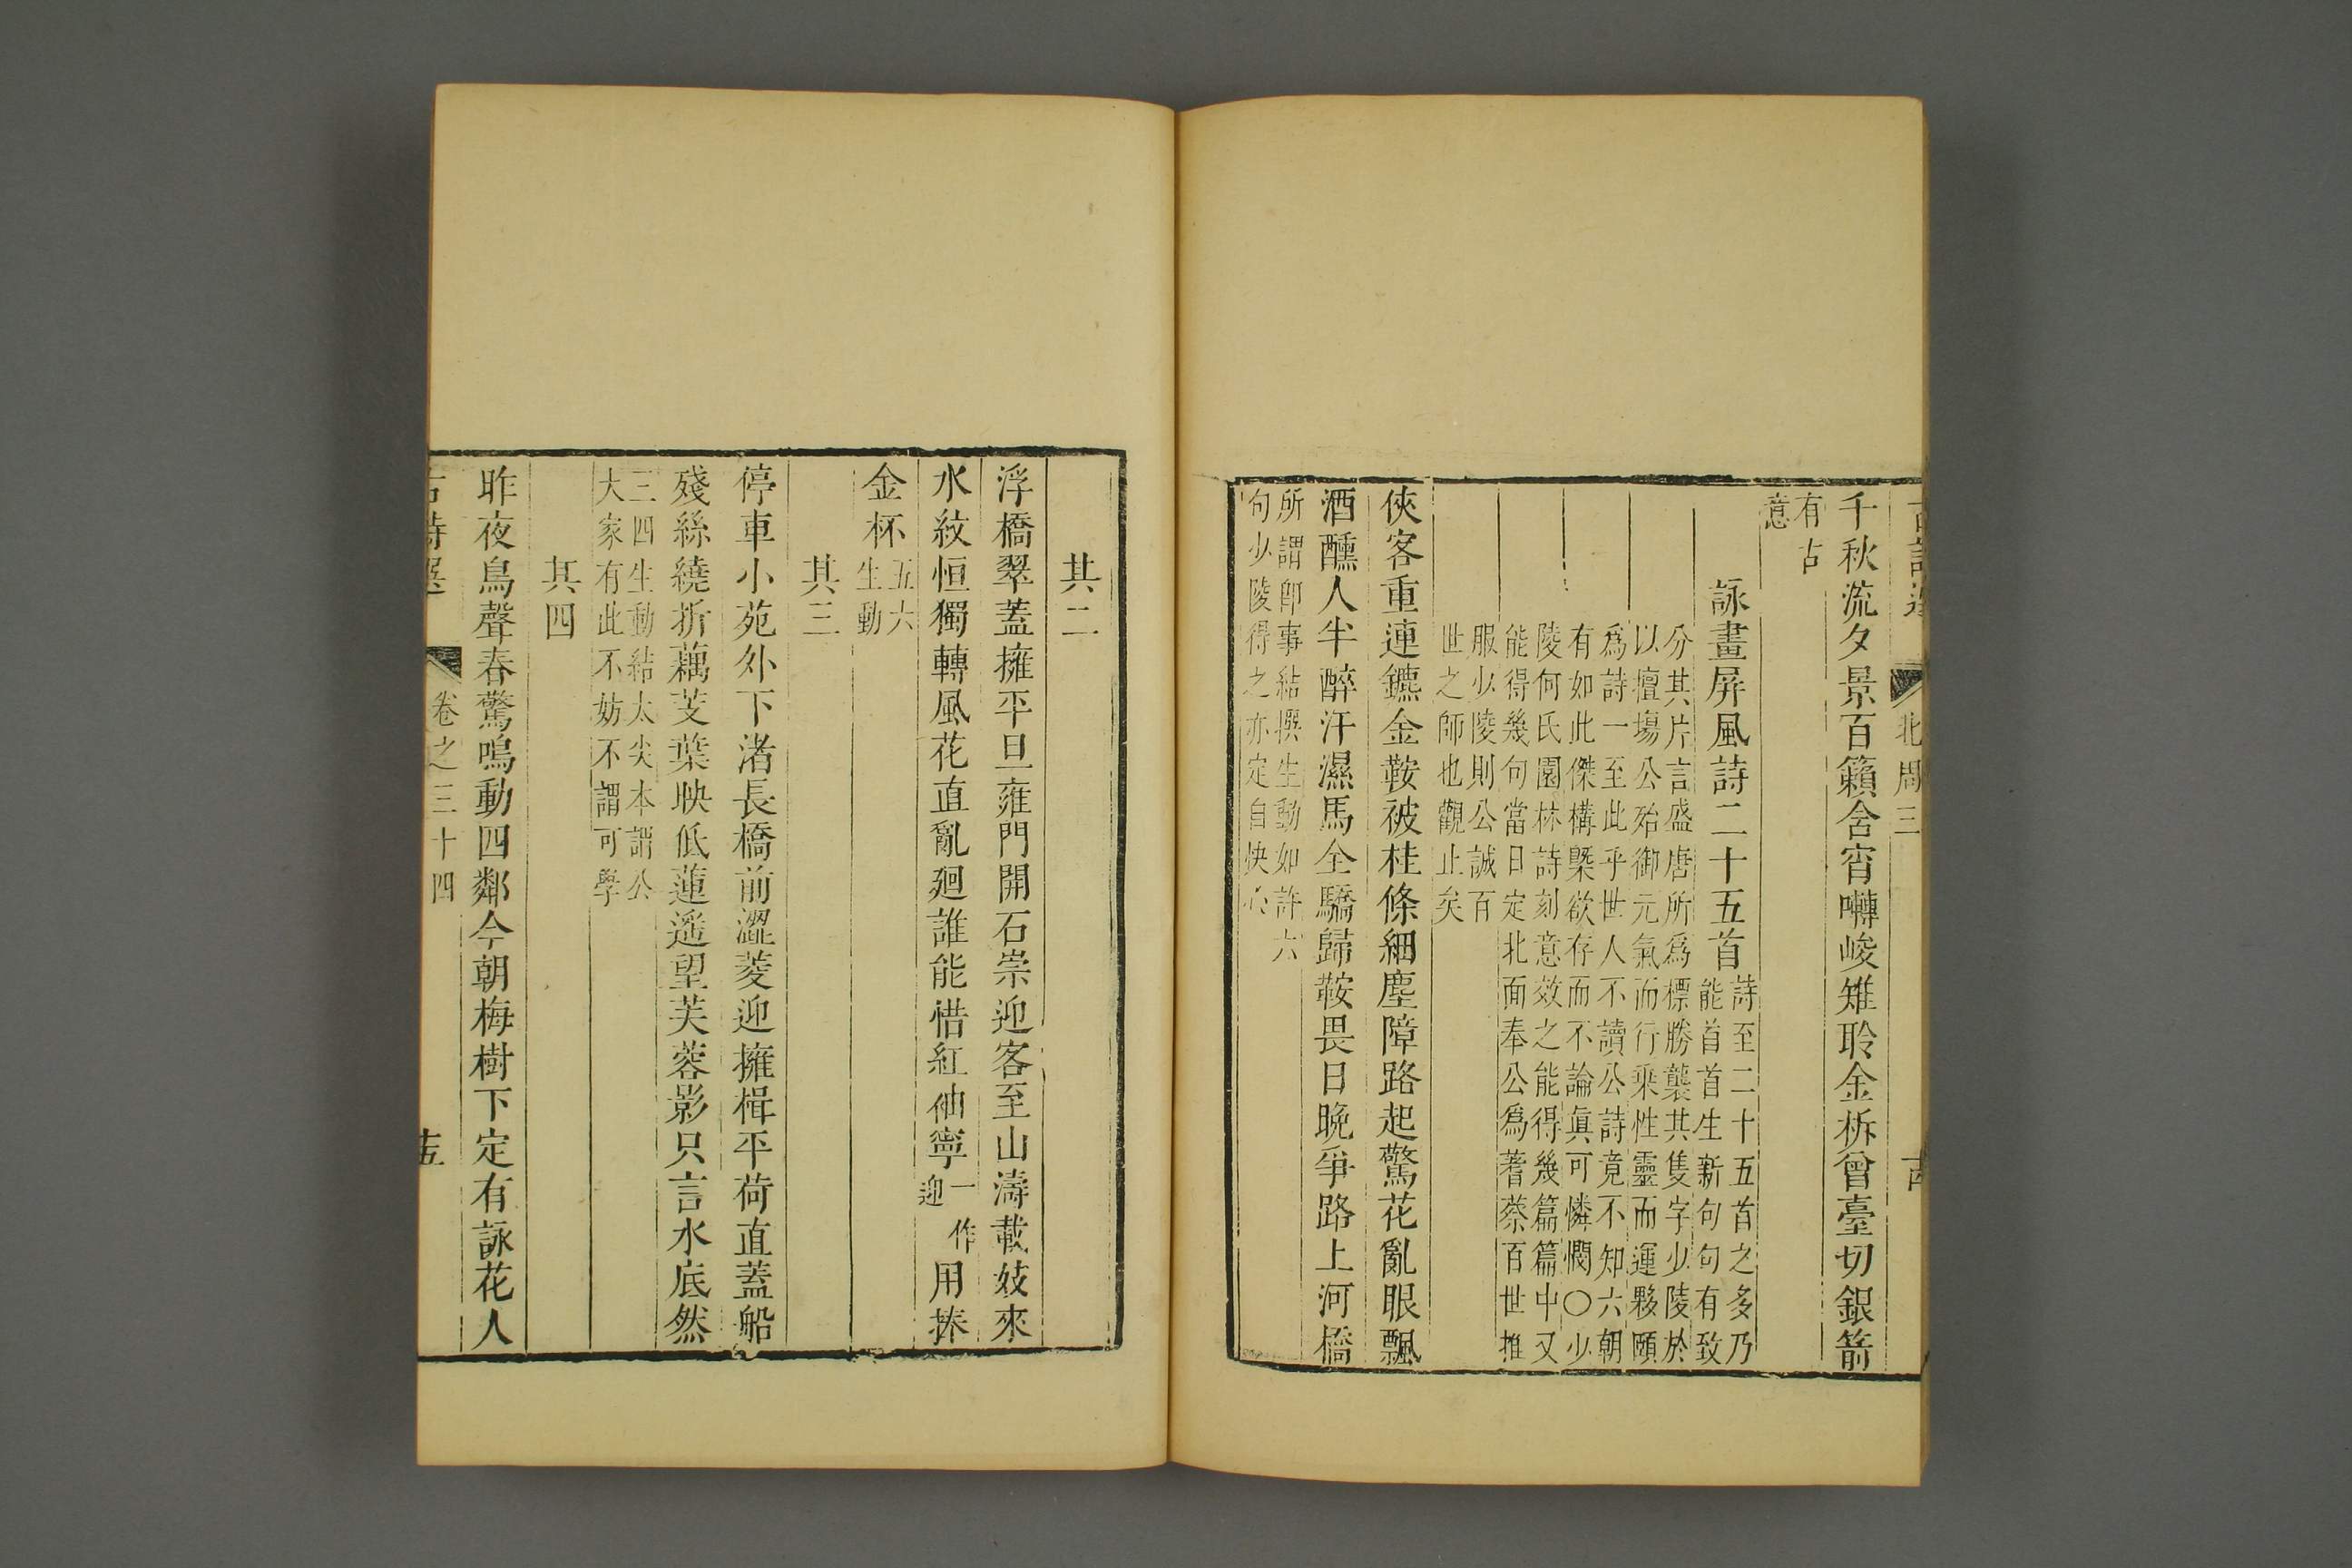 北周三
千秋流夕景百籟含宵囀峻雉聆金柝曾臺切銀箭
有古
意
詠畫屏風詩二十五首
詩至二十五首之多乃
能首首生新句句有致
分其片言盛唐所為標勝襲其隻字少陵於
以壇場公殆御元氣而行乘性靈而運夥頤
為詩一至此乎世人不讀公詩竟不知六朝
有如此傑構槩欲存而不論真可憐憫○少
陵何氏園林詩刻意效之能得幾篇篇中又
能得幾句當日定北面奉公為蓍蔡百世推
服少陵則公誠百
世之師也觀止矣
俠客重連鑣金鞍被桂條細塵障路起驚花亂眼飄
酒醺人半醉汗濕馬全驕歸鞍畏日晚爭路上河橋
所謂即事結撰生動如許六
句少陵得之亦定自快心
其二
浮橋翠蓋擁平旦雍門開石崇迎客至山濤載妓來
水紋恒獨轉風花直亂廻誰能惜紅袖寧一作迎用捧
金杯
五六
生動
其三
停車小苑外下渚長橋前澀菱迎擁楫平荷直蓋船
殘絲繞折藕芰葉映低蓮遙望芙蓉影只言水底然
三四生動結太尖本謂公
大家有此不妨不謂可學
其四
昨夜鳥聲春驚鳴動四鄰今朝梅樹下定有詠花人
卷之三十四